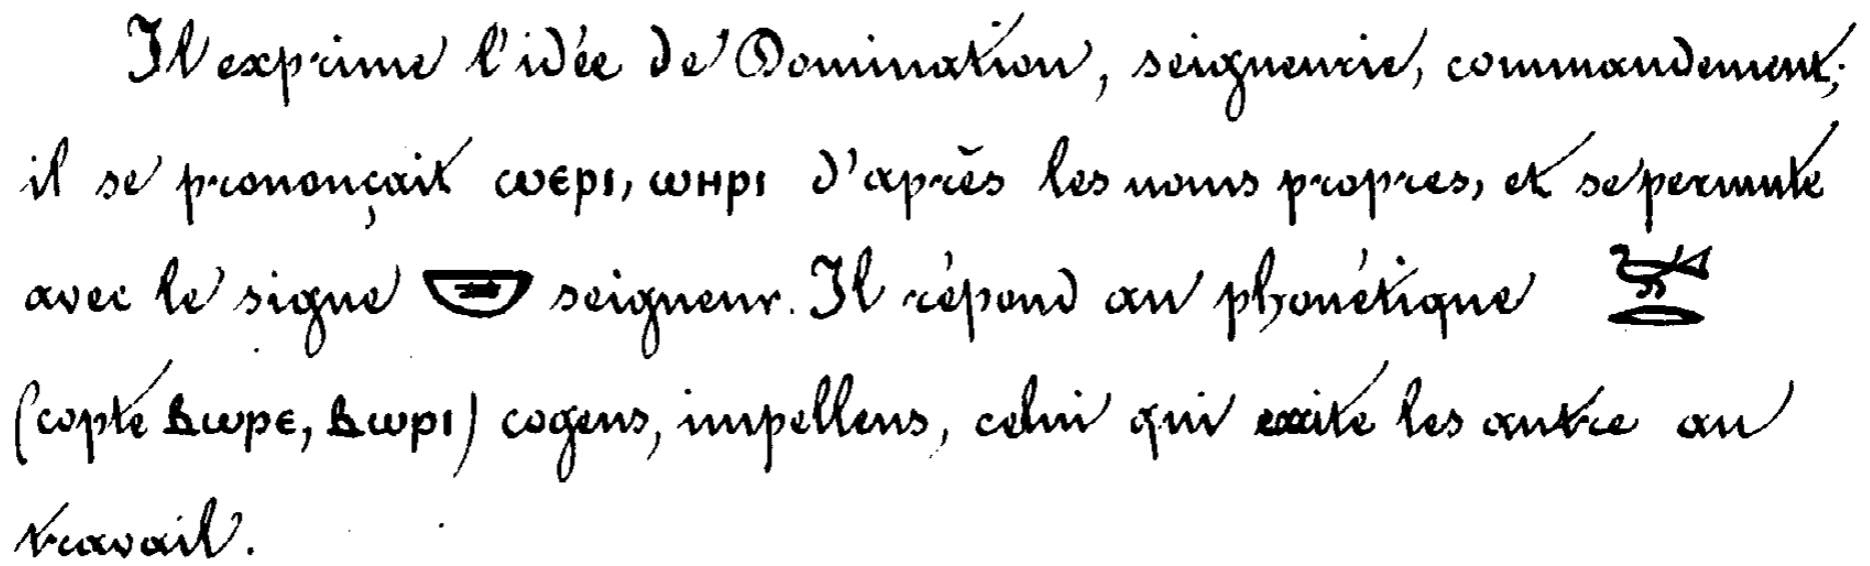 Il exprime l'idée de Domination, seigneurie, commandement;
il se prononçait ⲱⲉⲣⲓ, ⲱⲏⲣⲓ d'après les noms propres, et se permute
avec le signe 𓎟 seigneur. Il répond au phonétique 𓅨
(copte ⲃⲱⲣⲉ, ⲃⲱⲣⲓ) cogens, impellens, celui qui excite les autre au
travail.